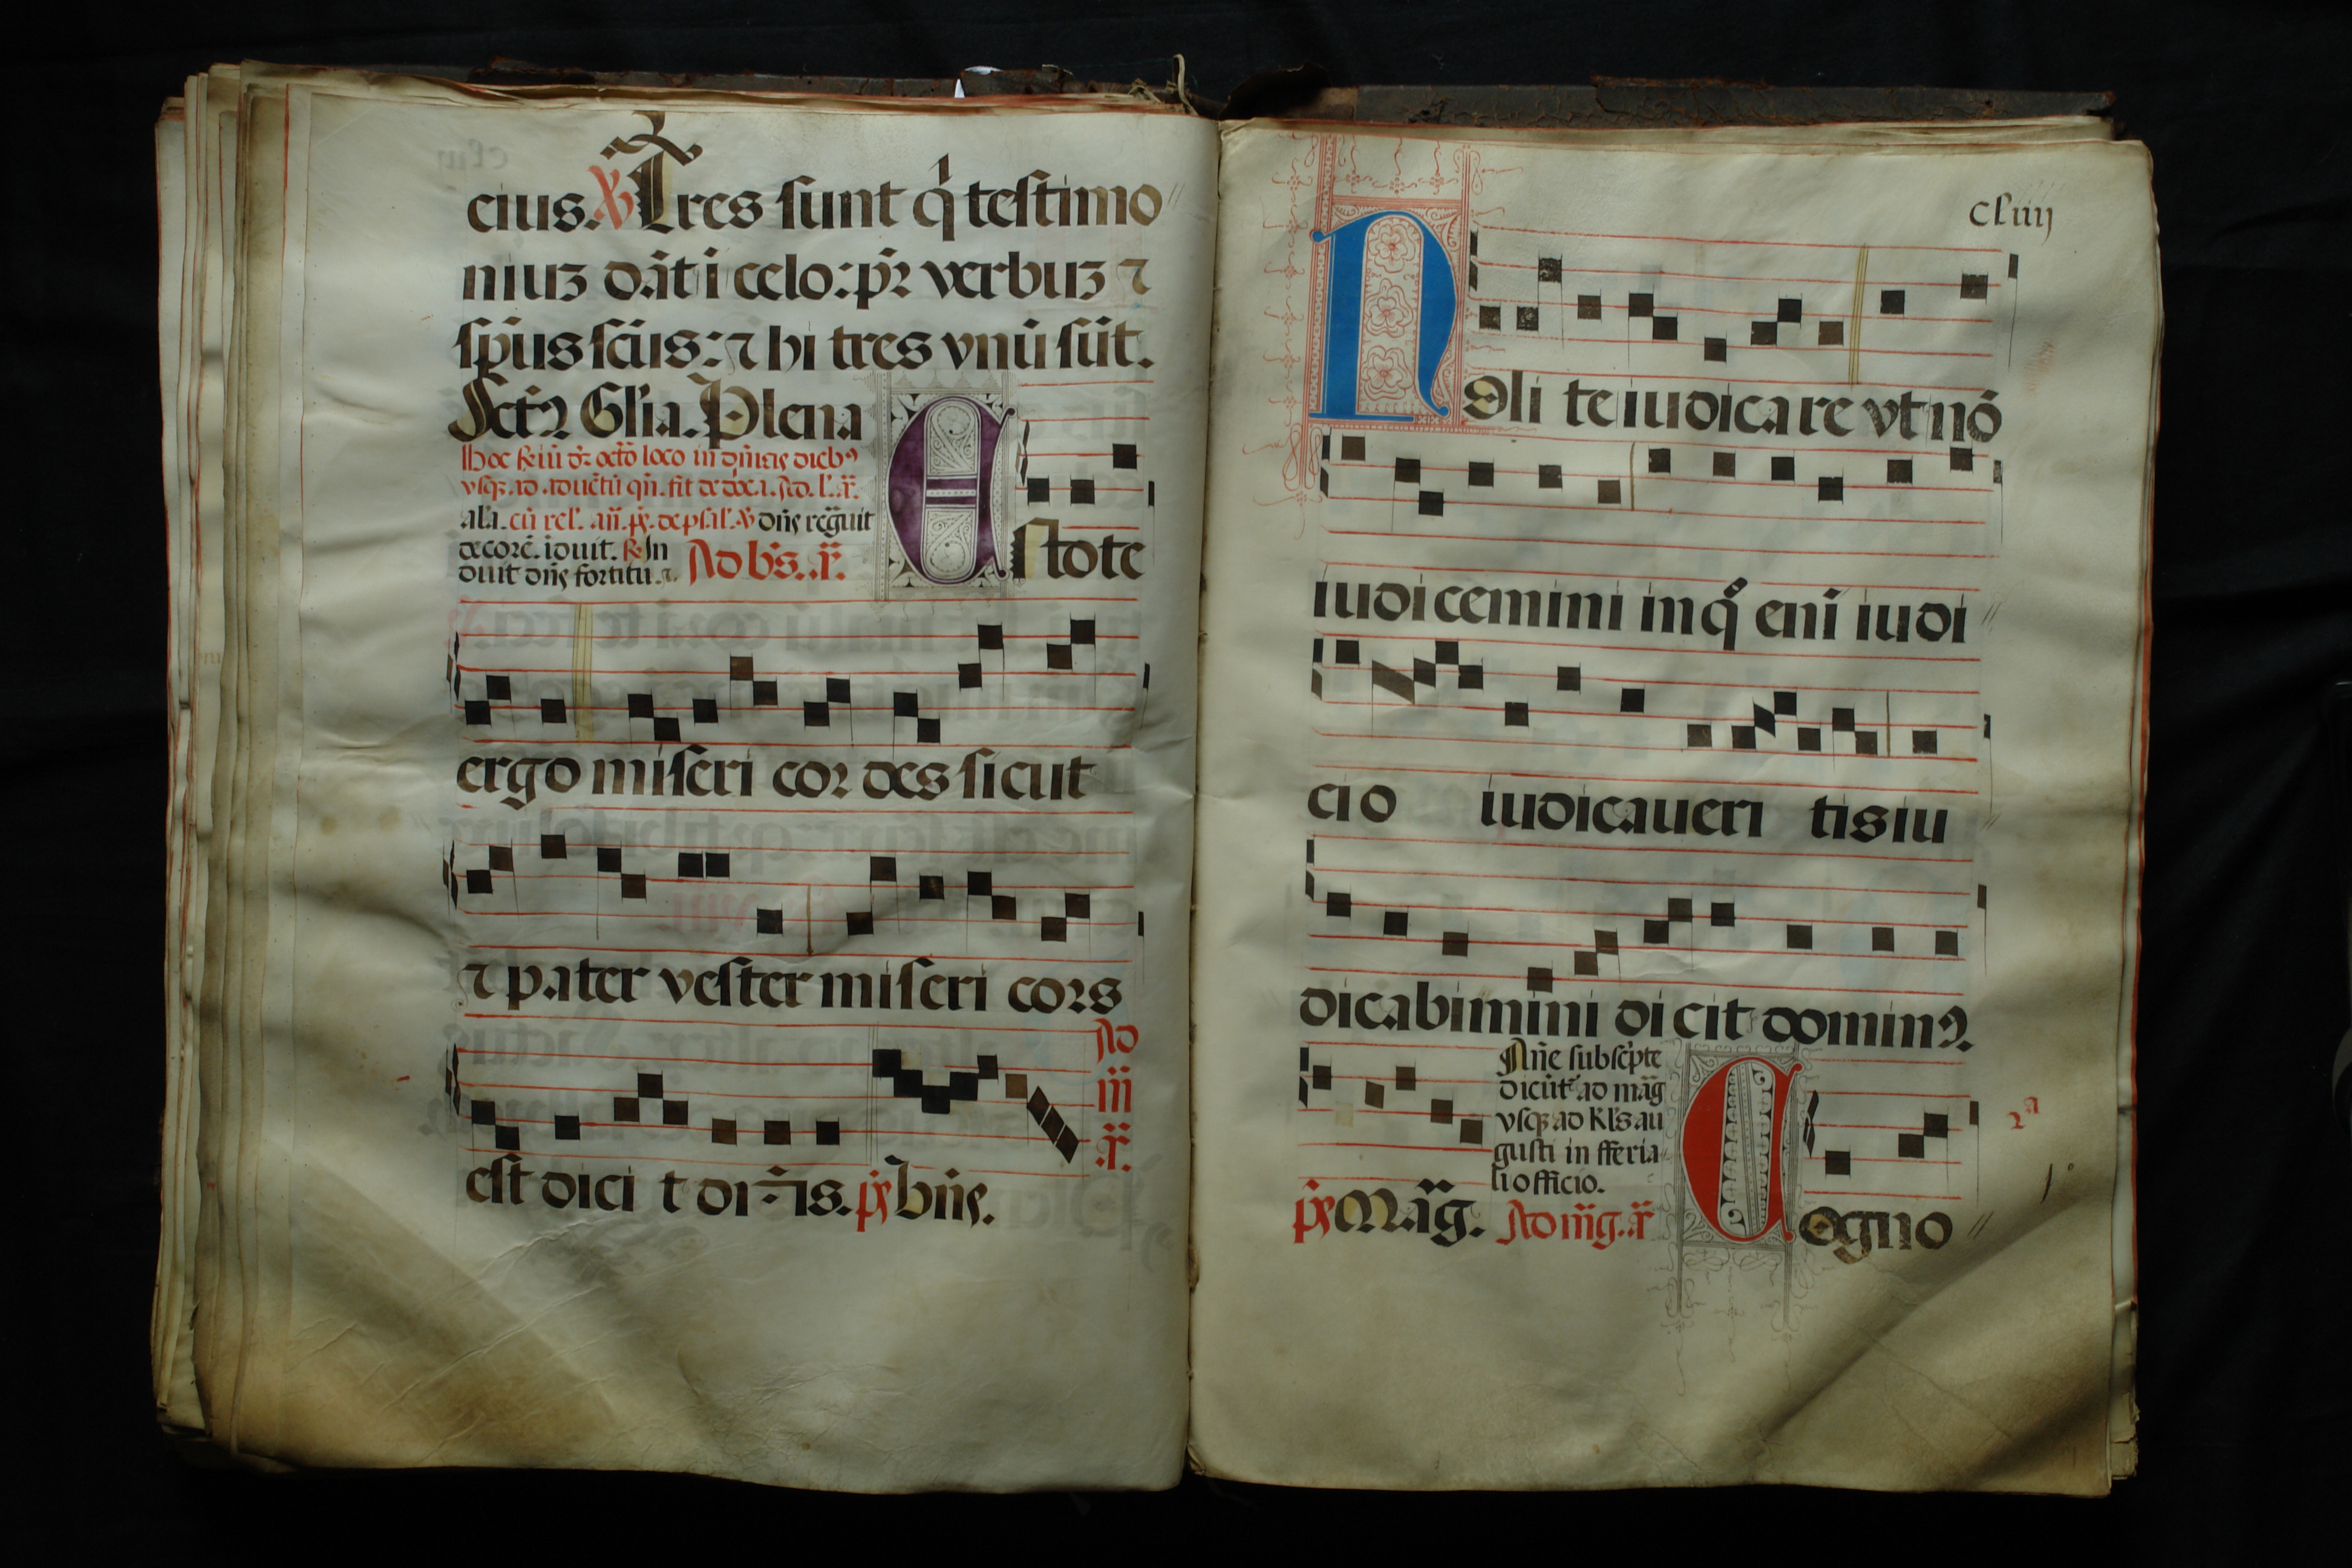 eius. ℣ Tres sunt q̇ testimo
niuʒ dāt ī celo: pr̄ verbuʒ ⁊
sp̄us sc̄us: ⁊ hi tres vnū sūt.
Gl'ia. Plena
Hoc loco in dn̄icis dieb⁹
vsqꝫ ad aduētū qn̄ fit de
ala. cū rel'. an̄. p̄s. de psal'. ℣ dn̄s regnuit
decorē. īduit. ℟ In
duit dn̄s fortitu. Ad bn̄s. an̄.
Estote
ergo miseri cordes sicut
⁊ pater vester miseri cors
est dici t dn̄s. p̄s Bn̄s.
Ad
m̄
an̄.
clıııȷ
Noli te iudicare vt nō
iudicemini in q° enī iudi
cio iudicaueri tis iu
dicabimini dicit domin⁹.
An̄e subsc'pte
dicūt᷑ ad maḡ
vsqꝫ ad kl's au
gusti in fferia
li officio.
p̄s Maḡ. Ad mḡ. an̄
Cogno
2ª